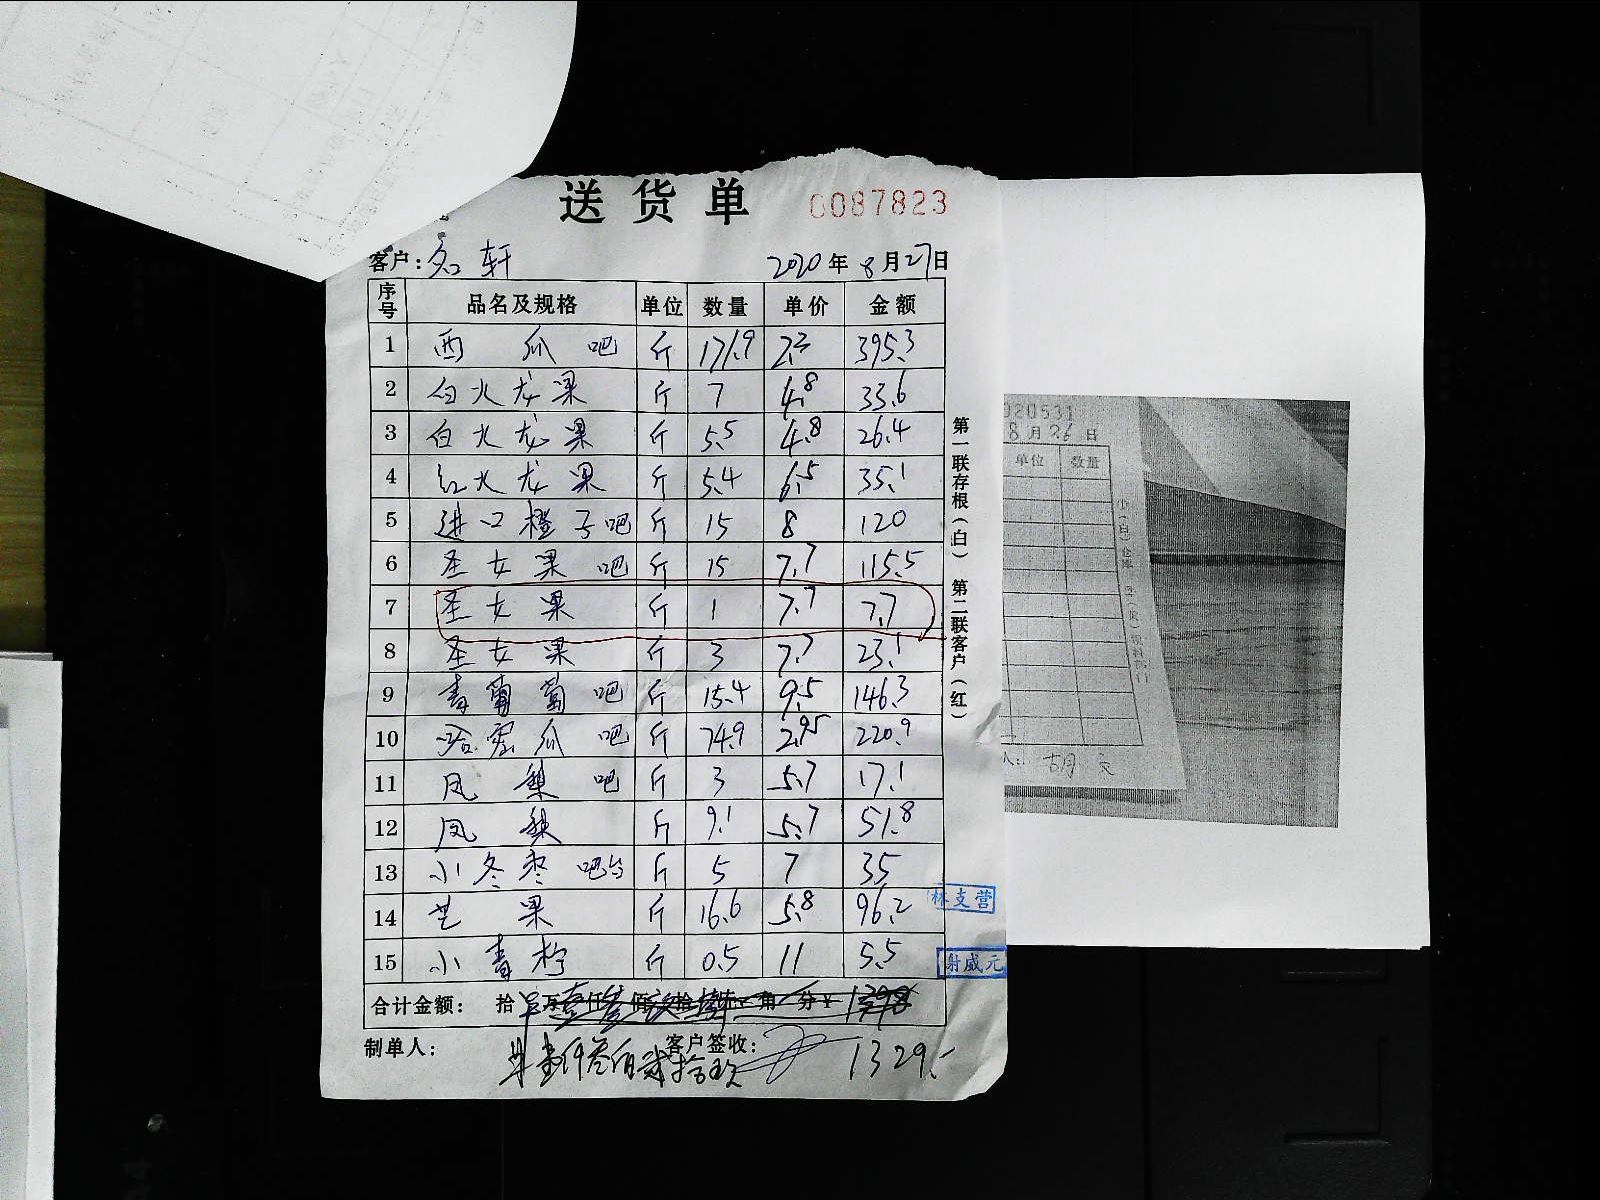 送货单 0087823
客户：名轩 2020年8月27日
序号 品名及规格 单位 数量 单价 金额
1 西瓜吧 斤 171.9 2.3 395.3
2 白火龙果 斤 7 4.8 33.6
3 白火龙果 斤 5.5 4.8 26.4
4 红火龙果 斤 5.4 6.5 35.1
5 进口橙子吧 斤 15 8 120
6 圣女果吧 斤 15 7.7 115.5
7 圣女果 斤 1 7.7 7.7
8 圣女果 斤 3 7.7 23.1
9 青葡萄吧 斤 15.4 9.5 146.3
10 哈密瓜吧 斤 74.9 2.95 220.9
11 凤梨吧 斤 3 5.7 17.1
12 凤梨 斤 9.1 5.7 51.8
13 小冬枣吧台 斤 5 7 35
14 芒果 斤 16.6 5.8 96.2
15 小青柠 斤 0.5 11 5.5
合计金额： 拾
制单人： 客户签收：
壹仟叁佰贰拾玖 1329.-
第一联存根（白） 第二联客户（红）
林支营
谢威元
020531
8月26日
单位 数量